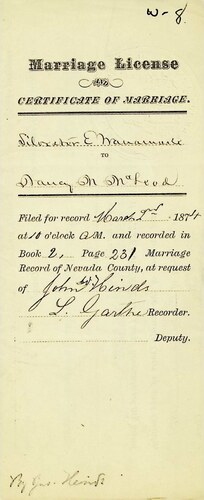 w-8
Marriage License
AND
CERTIFICATE OF MARRIAGE.
Silvester E
TO
Nancy M McLeod
Filed for record March 2nd 1874
at 10 o'clock A.M. and recorded in
Book 2, Page 231 Marriage
Record of Nevada County, at request
of John Hinds
L. Garthe Recorder.
Deputy.
By Jno. Hinds